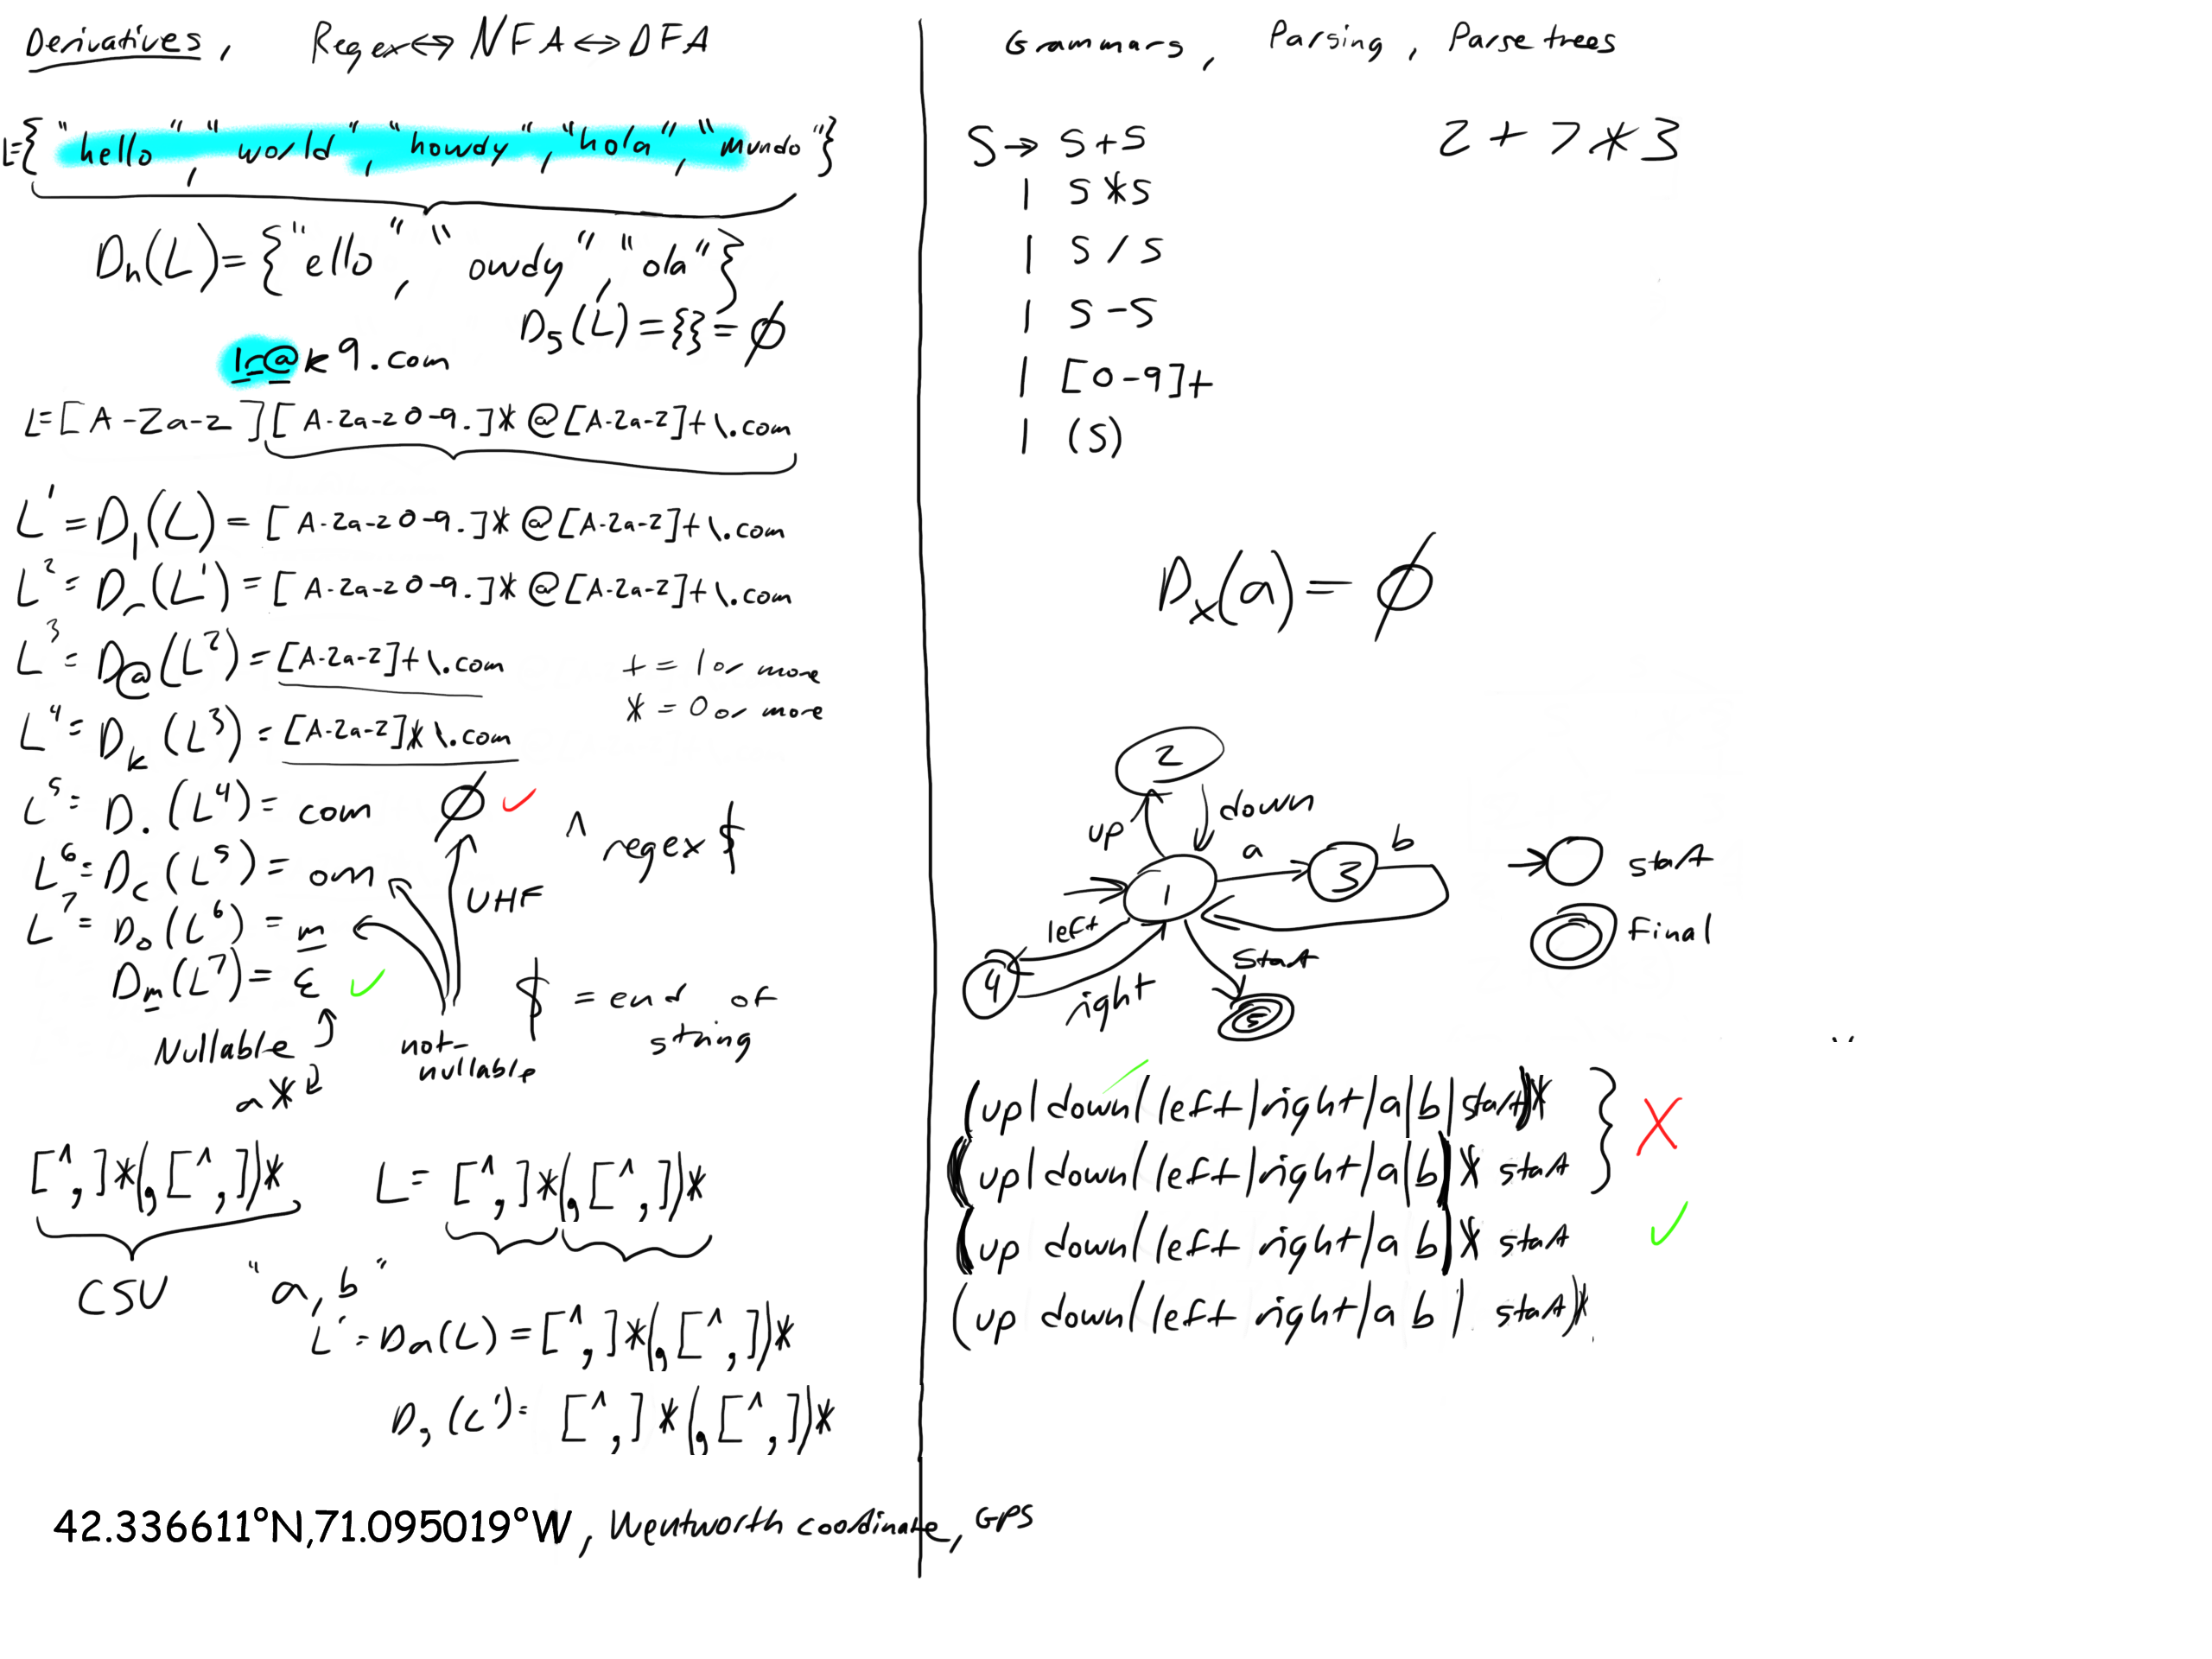 Derivatives, Regex⇔NFA⇔DFA
L={"hello", "world", "howdy", "hola", "mundo"}
Dh(L)={"ello", "owdy", "ola"}
D5(L)={}=∅
lr@k9.com
L=[A-Za-z][A-Za-z0-9.]*@[A-Za-z]+\.com
L¹=Dl(L)=[A-Za-z0-9.]*@[A-Za-z]+\.com
L²=Dr(L¹)=[A-Za-z0-9.]*@[A-Za-z]+\.com
L³=D@(L²)=[A-Za-z]+\.com
+ = 1 or more
* = 0 or more
L⁴=Dk(L³)=[A-Za-z]*\.com
L⁵=D.(L⁴)=com ∅ ✓
^regex$
L⁶=Dc(L⁵)=om
UHF
L⁷=Do(L⁶)=m
Dm(L⁷)=ε ✓
$ = end of string
Nullable
not-nullable
a*
[^,]*(,[^,])*
CSV
L=[^,]*(,[^,])*
"a,b"
L'=Da(L)=[^,]*(,[^,])*
D,(L')=[^,]*(,[^,])*
42.336611°N,71.095019°W, Wentworth coordinate, GPS
Grammars, Parsing, Parse trees
S→ S+S
| S*S
| S/S
| S-S
| [0-9]+
| (S)
2+7*3
Dx(a)=∅
2
up
down
1
a
3
b
left
4
right
start
5
start
Final
(up|down|left|right|a|b|start)*
(up|down|left|right|a|b)* start
X
(up down|left right|a b)* start
✓
(up down|left right|a b| start)*